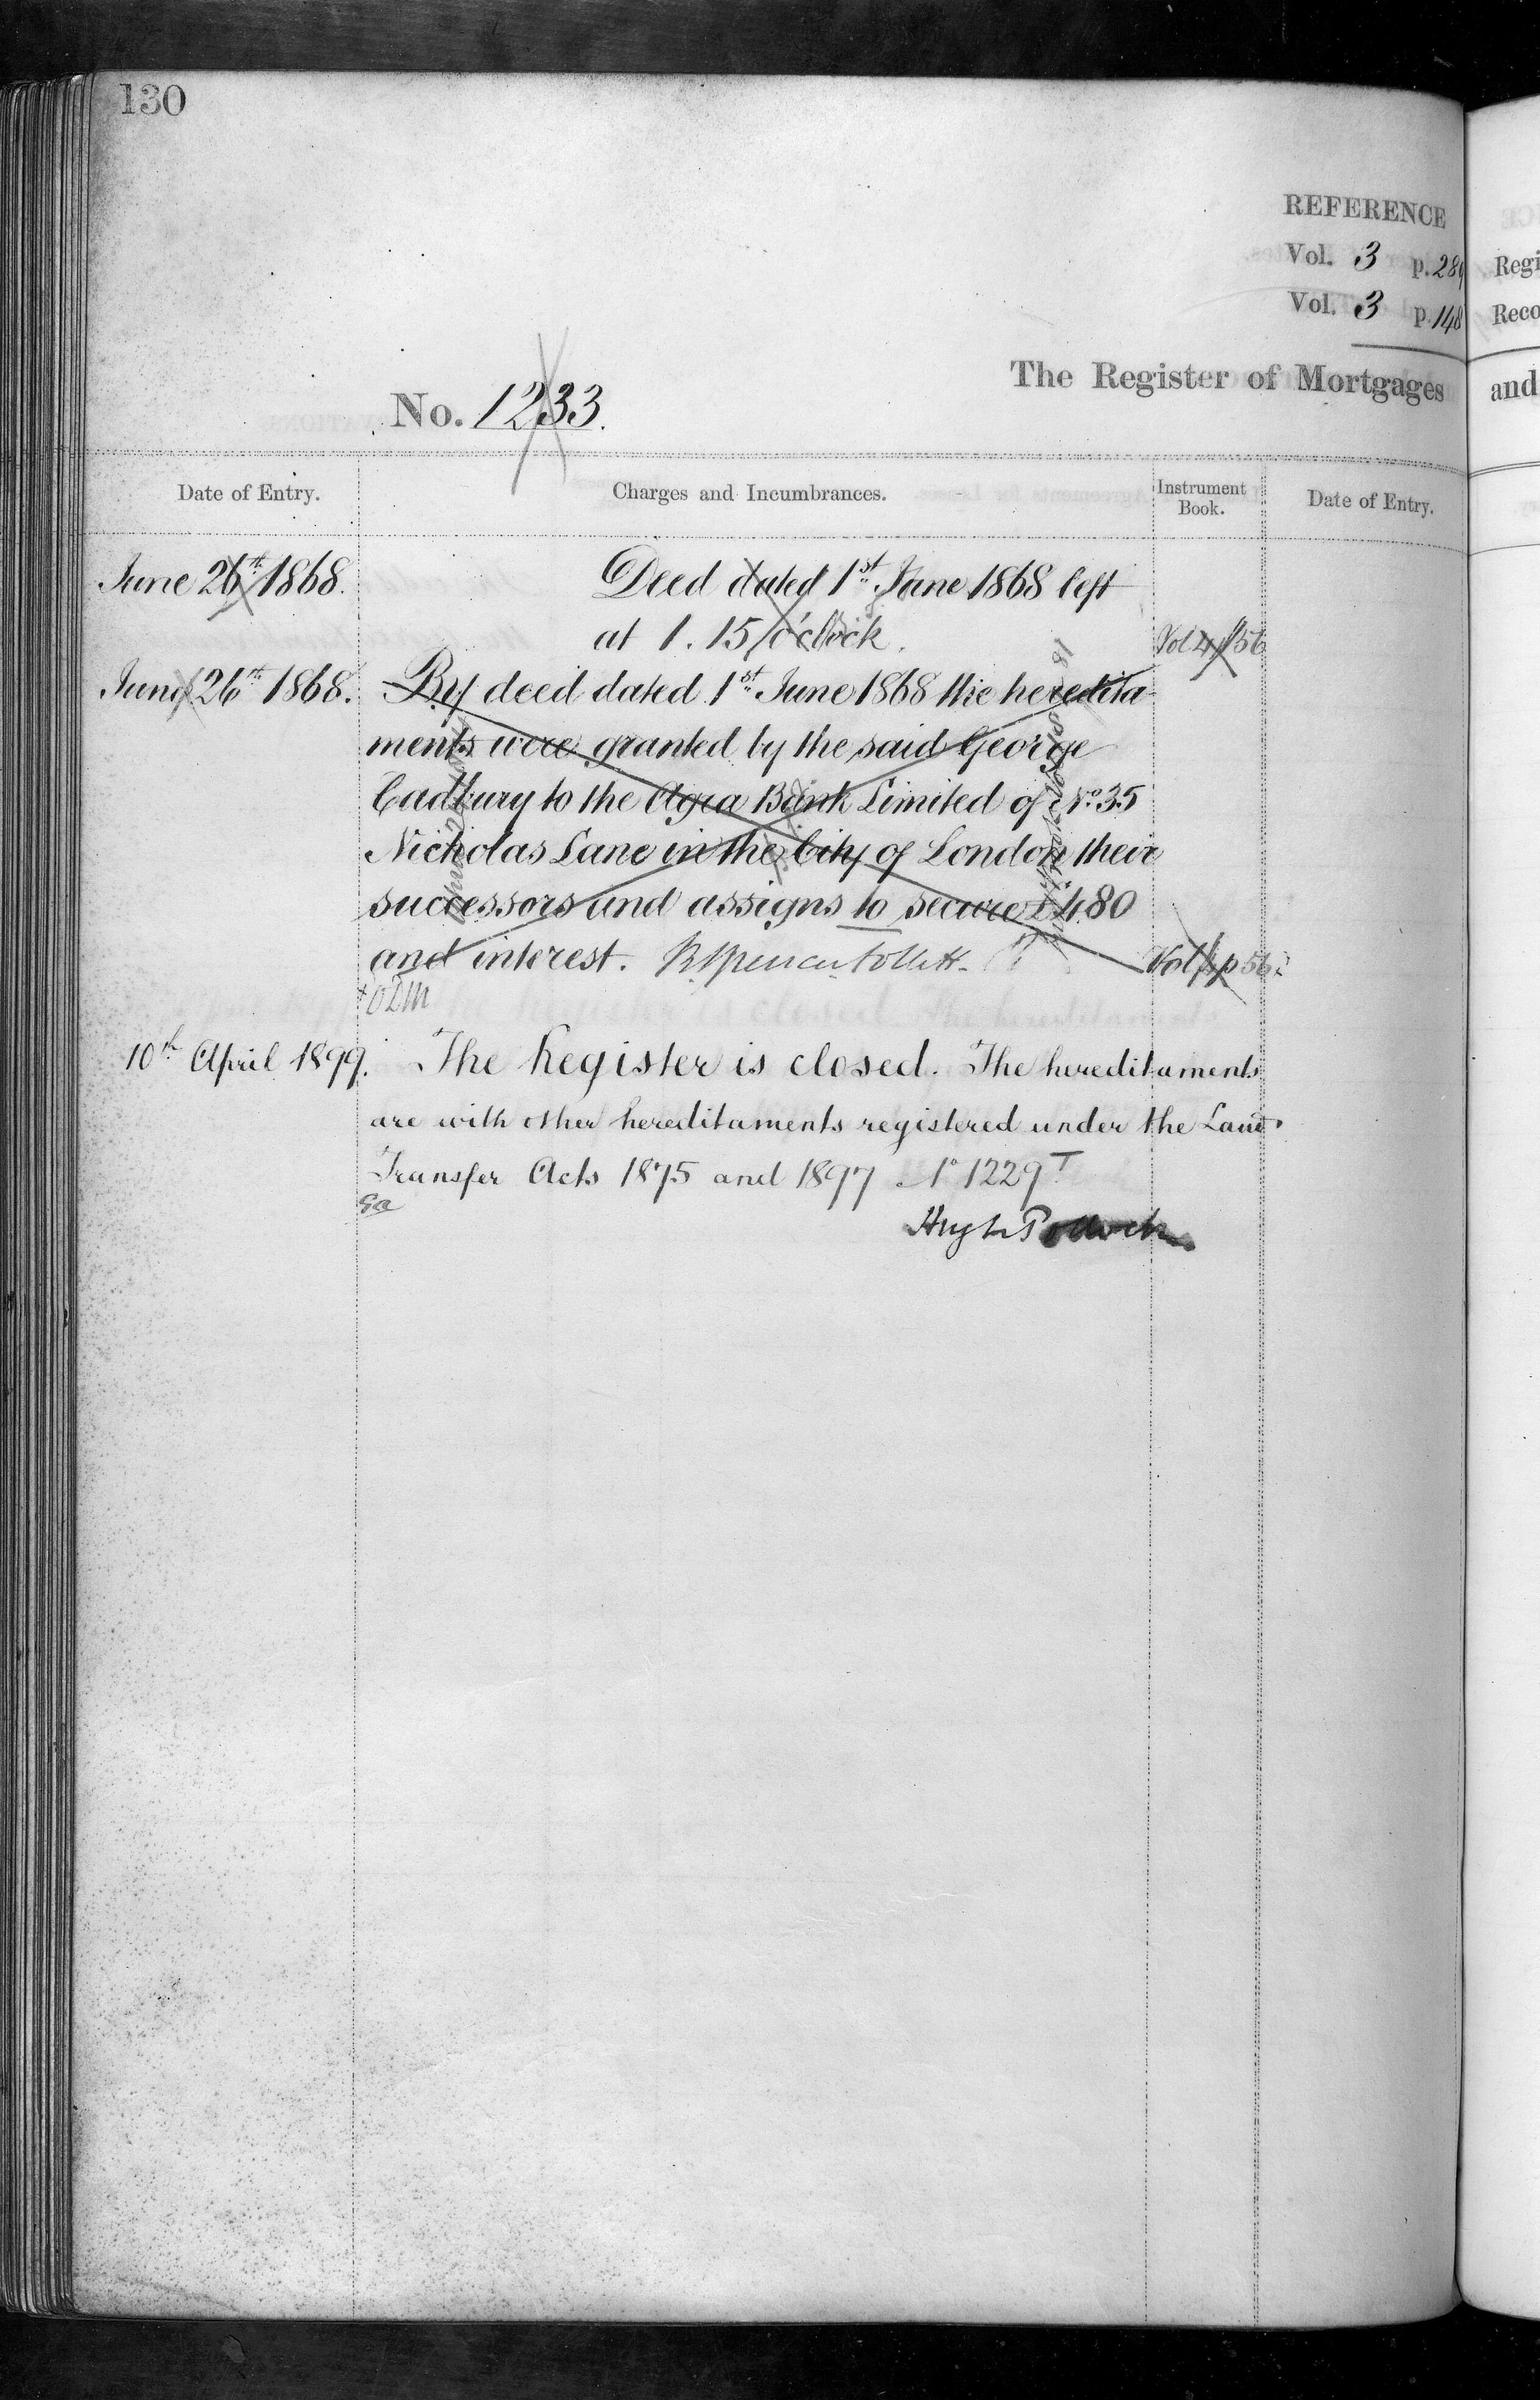 130
REFERENCE
Vol. 3 p. 289
Vol. 3 p. 148
The Register of Mortgages
No. 1233.
Date of Entry.
Charges and Incumbrances.
Instrument Book.
Date of Entry.
June 26th 1868.
Deed dated 1st June 1868 left
at 1.15 o'clock.
Vol 4 p 56
June 26th 1868.
By deed dated 1st June 1868 the heredita-
ments were granted by the said George
Cadbury to the Agra Bank Limited of No. 35
Nicholas Lane in the City of London their
successors and assigns to secure £480
and interest. R Spencer Follett
Vol 4 p 56
10th April 1899.
The Register is closed. The hereditaments
are with other hereditaments registered under the Land
Transfer Acts 1875 and 1897 No 1229T
Hugh Pollock
Regi
Reco
and